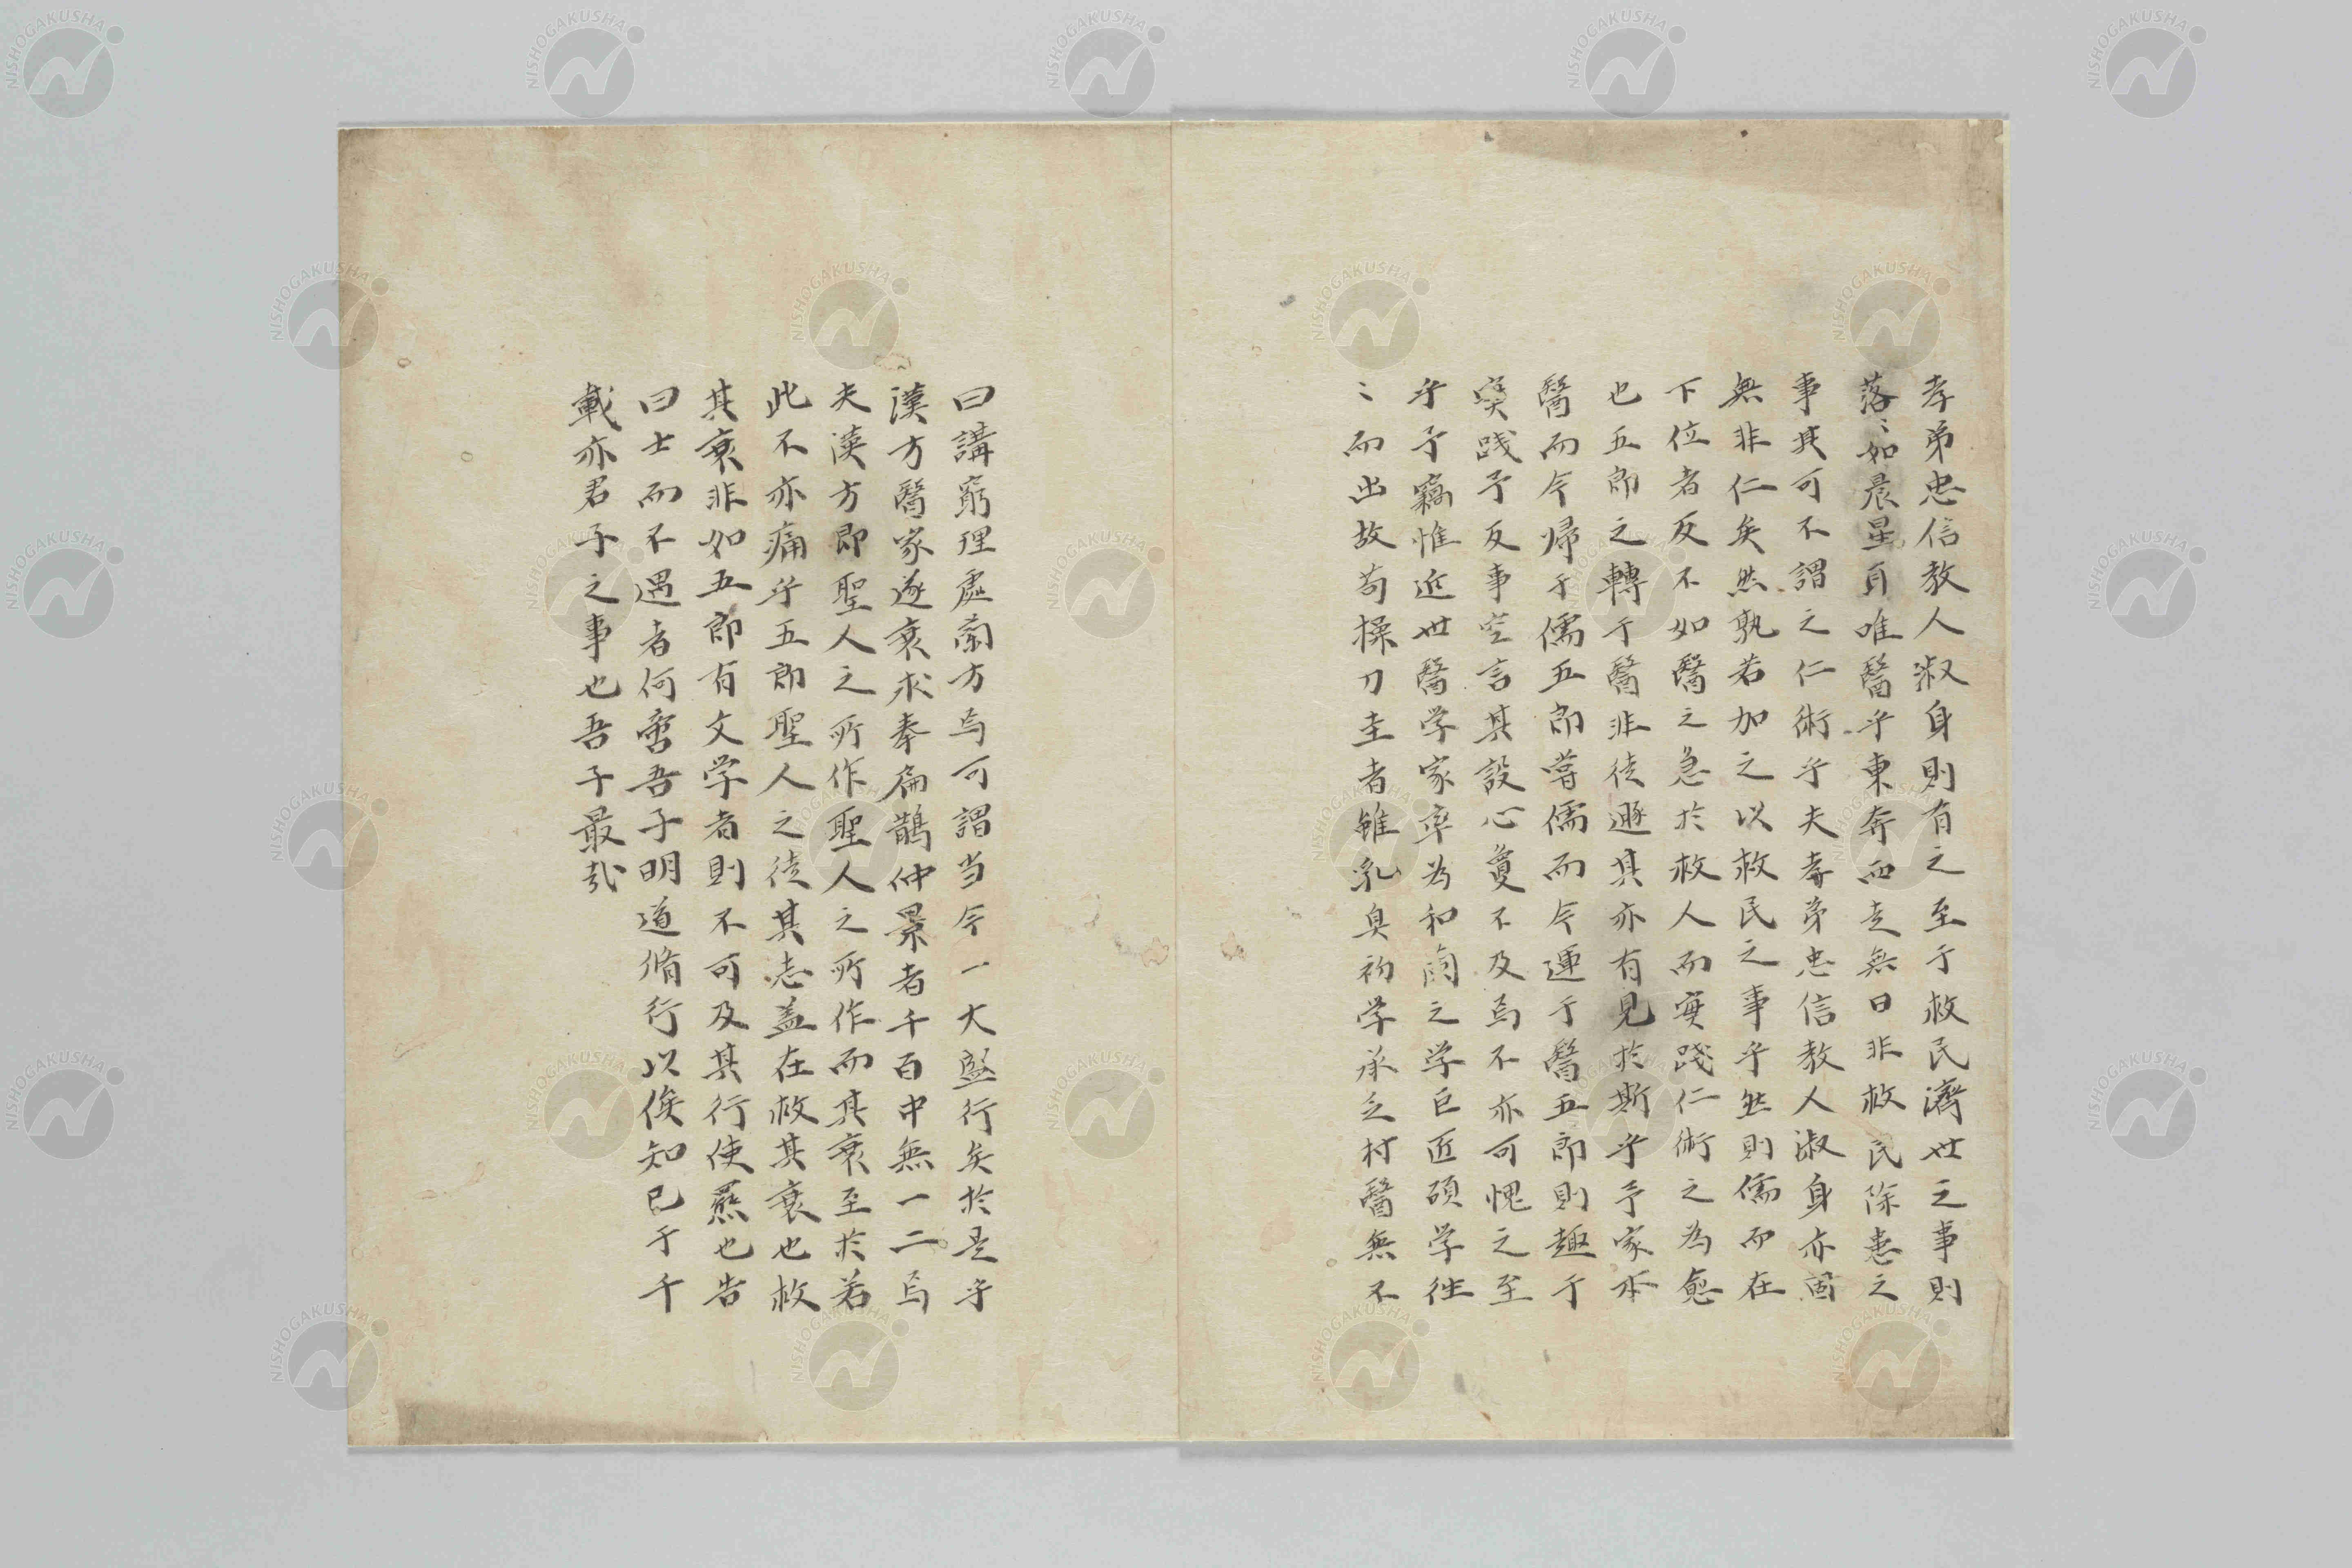 孝弟忠信教人淑身則有之至于救民濟世之事則
落〻如晨星頁唯醫乎東奔西走無日非救民除患之
事其可不謂之仁術乎夫孝弟忠信教人淑身亦固
無非仁矣然孰若加之以救民之事乎然則儒而在
下位者反不如醫之急於救人而実踐仁術之為愈
也五郎之轉于醫非徒遯其亦有見於斯乎予家本
醫而今帰于儒五郎嘗儒而今運于醫五郎則趣于
実践予反事空言其設心敻不及焉不亦可愧之至
乎予竊惟近世醫学家率為和蘭之学巨匠碩学徃
〻而出故苟操刀圭者雖乳臭初学承乏村醫無不
曰講窮理處蘭方焉可謂当今一大盛行矣於是乎
漢方醫家遂衰求奉扁鵲仲景者千百中無一二焉
夫漢方即聖人之所作聖人之所作而其衰至於若
此不亦痛乎五郎聖人之徒其志蓋在救其衰也救
其衰非如五郎有文学者則不可及其行使㷼也告
曰士而不遇者何啻吾子明道脩行以俟知已于千
載亦君子之事也吾子最哉
NISHOGAKUSHA